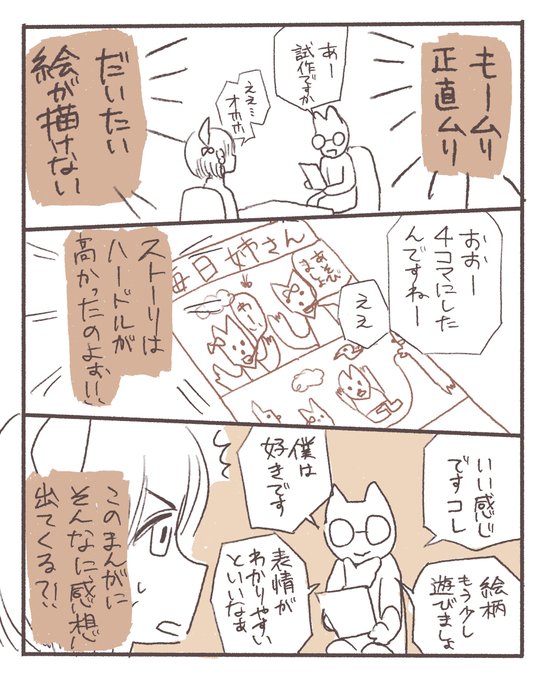 もームリ
正直ムリ
あー
試作ですか
ええ…
オホホ
だいたい
絵が描けない
おおー
4コマにした
んですねー
ええ
毎日姉さん
あそび
ましょ
わーい
ストーリは
ハードルが
高かったのよぉ!!
いい感じ
ですコレ
絵柄
もう少し
遊びましょ
僕は
好きです
表情が
わかりやすい
といいなぁ
このまんがに
そんなに感想
出てくる?!!